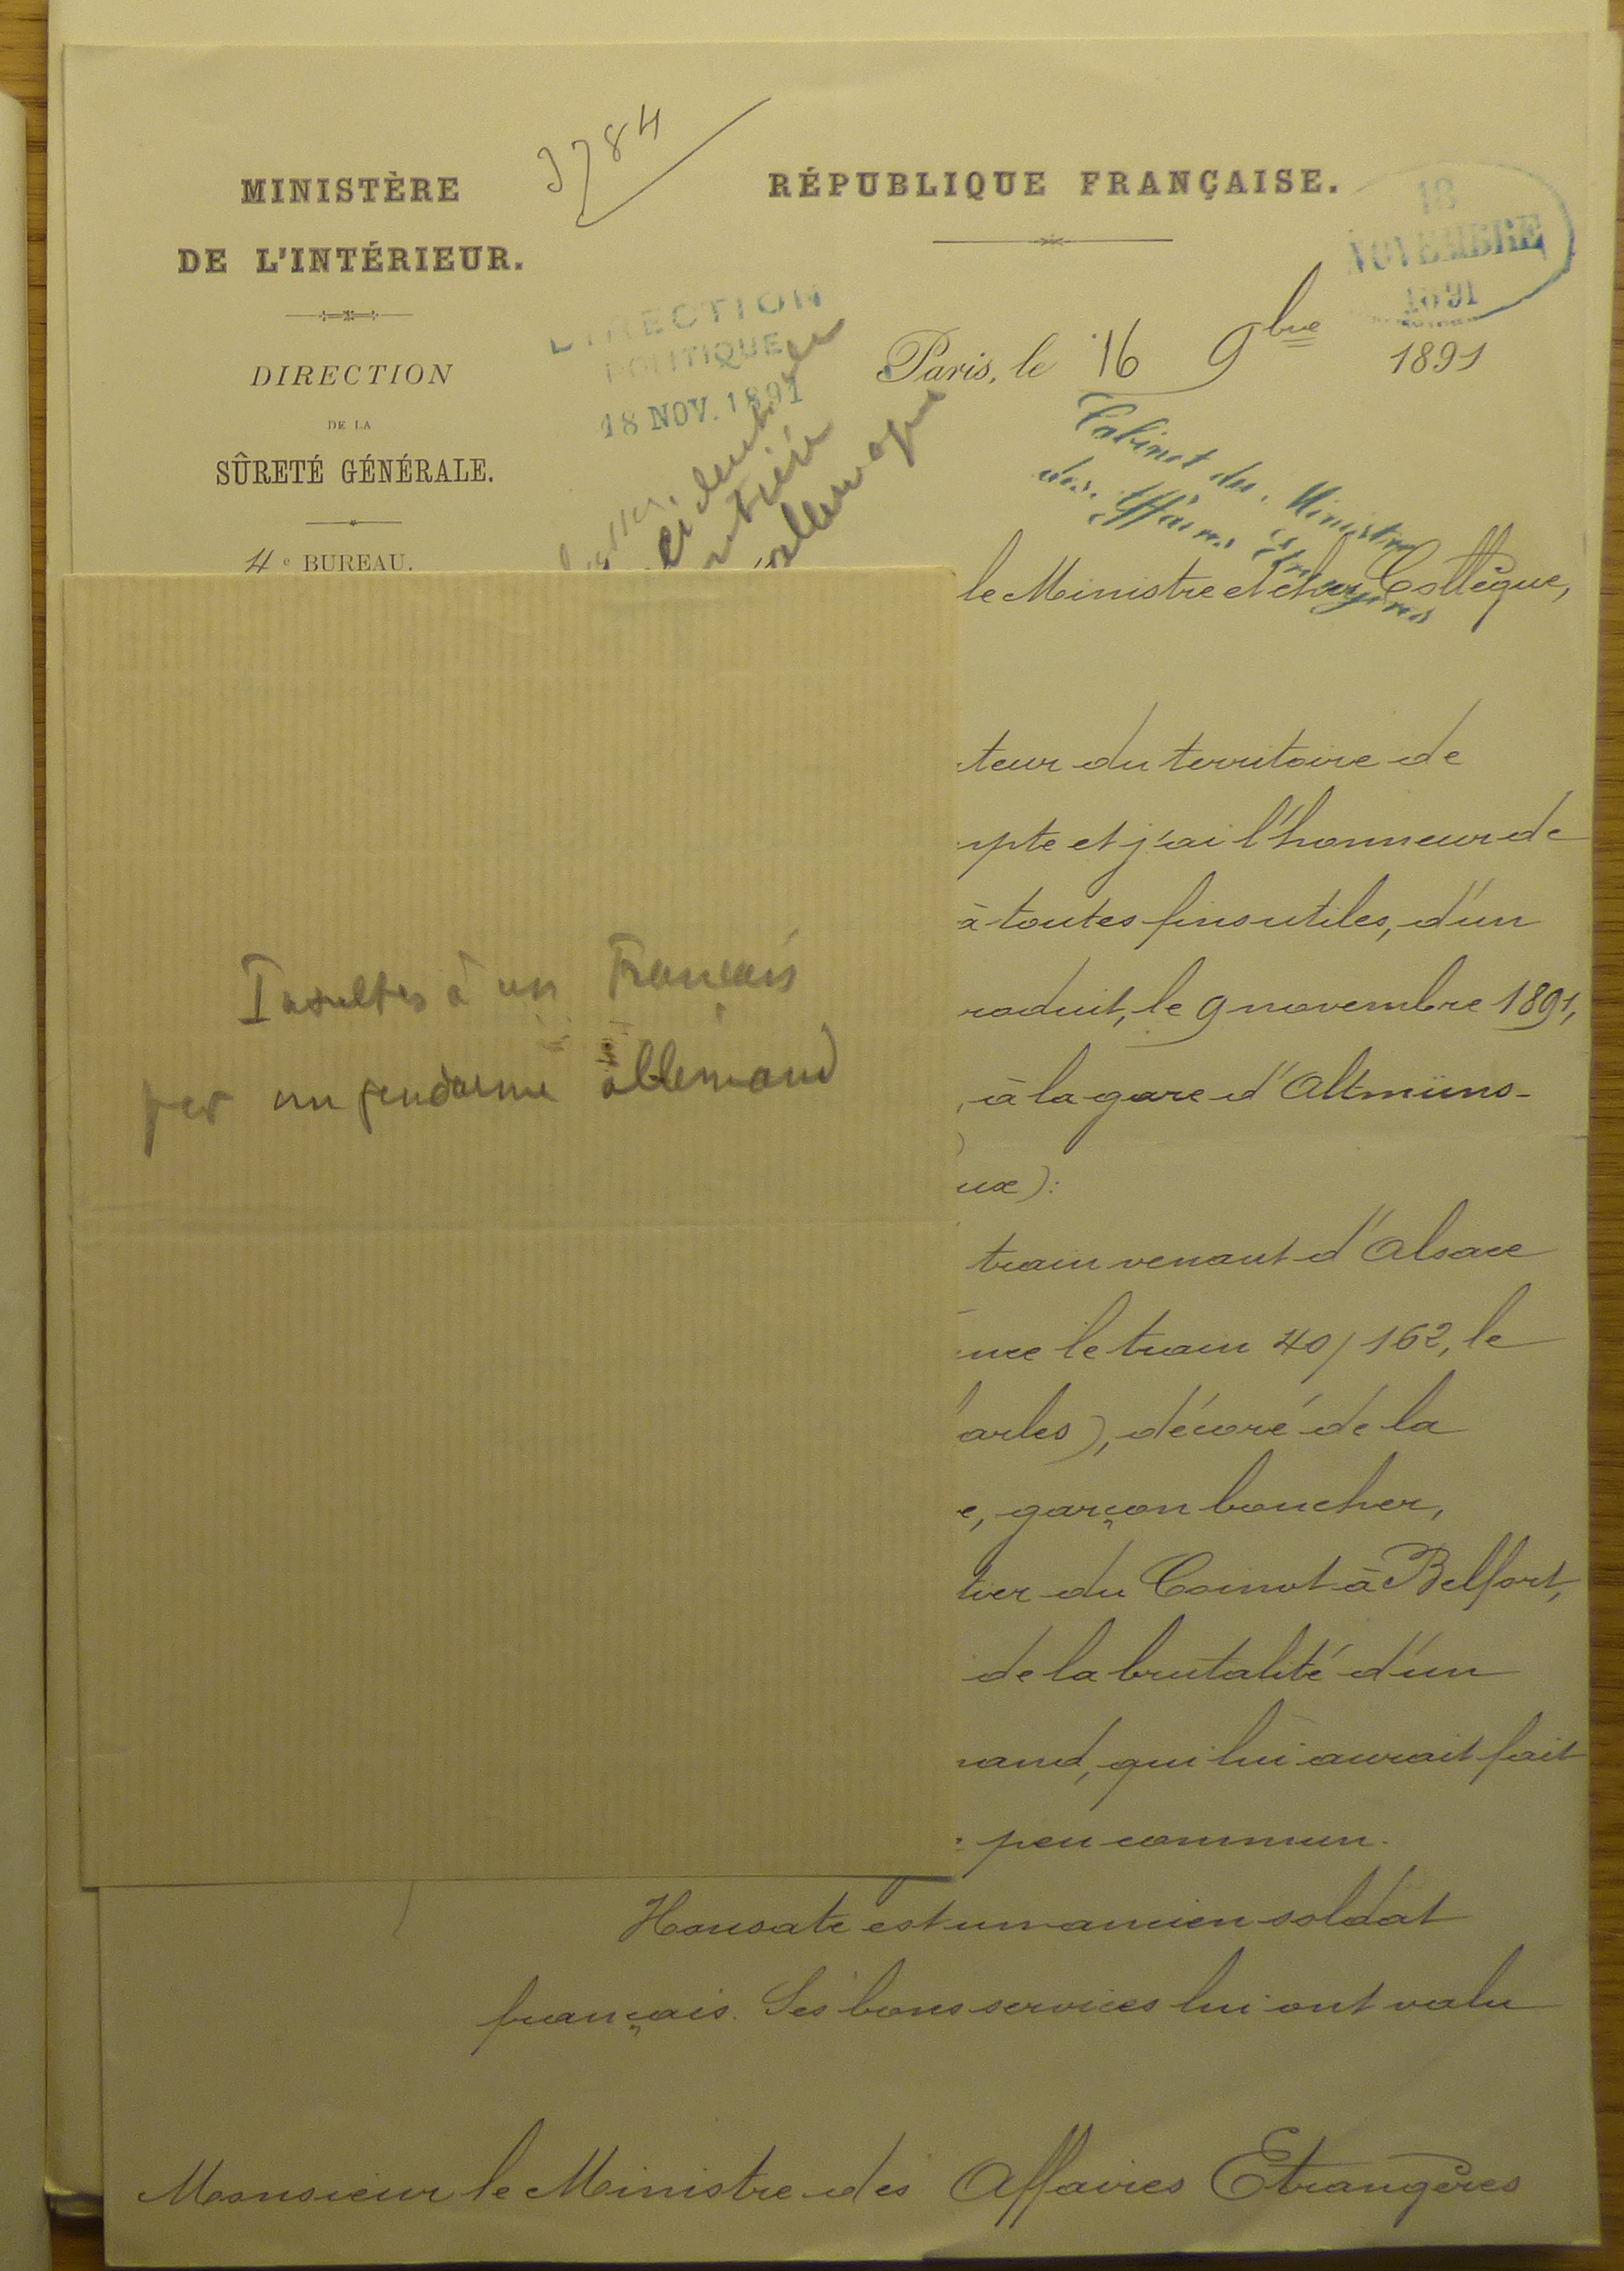 3784
MINISTÈRE
DE L'INTÉRIEUR.
DIRECTION
DE LA
SÛRETÉ GÉNÉRALE.
4e BUREAU.
RÉPUBLIQUE FRANÇAISE.
18
NOVEMBRE
1891
DIRECTION
POLITIQUE
18 NOV. 1891
Paris, le 16 9bre 1891
Cabinet du Ministre
des Affaires Etrangères
le Ministre et cher Collègue,
teur du territoire de
mpte et j'ai l'honneur de
à toutes fins utiles, d'un
roduit, le 9 novembre 1891,
, à la gare d'Altmüns-
ux):
train venant d'Alsace
le train 40/162, le
arles), décoré de la
e, garçon boucher,
tier du Coinot à Belfort,
de la brutalité d'un
mand, qui lui aurait fait
peu commun.
Insultes à un Français
par un gendarme allemand
est un ancien soldat
français. Ses bons services lui ont valu
Monsieur le Ministre des Affaires Etrangères